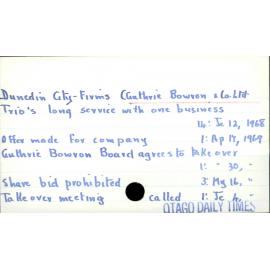 Dunedin City-Firms (Guthrie Bowron & Co. Ltd
Trio's long service with one business
14: Je 12, 1968
Offer made for company 1: Ap 17, 1969
Guthrie Bowron Board agrees to takeover
1: " 30, "
Share bid prohibited 3: My 16, "
Takeover meeting called 1: Je 4, "
OTAGO DAILY TIMES